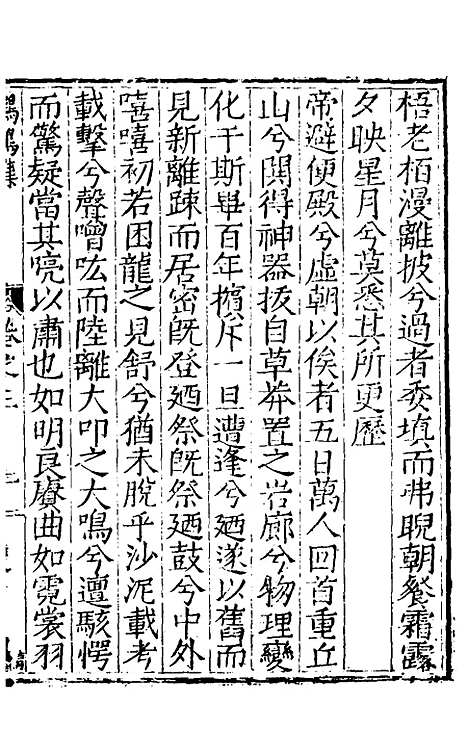 梧老栢漫離披兮過者委填而弗睨朝餐霜露
夕映星月兮莫悉其所更歷
帝避便殿兮虛朝以俟者五日萬人回首重丘
山兮閱得神器拔自草莽置之岩廊兮物理變
化于斯畢百年擯斥一旦遭逢兮廼遂以舊而
見新離踈而居密旣登廼祭旣祭廼鼓兮中外
嘻嘻初若困龍之見舒兮猶未脫乎沙泥載考
載擊兮聲噌吰而陸離大叩之大鳴兮遭駭愕
而驚疑當其喨以肅也如明良賡曲如霓裳羽
卷之三